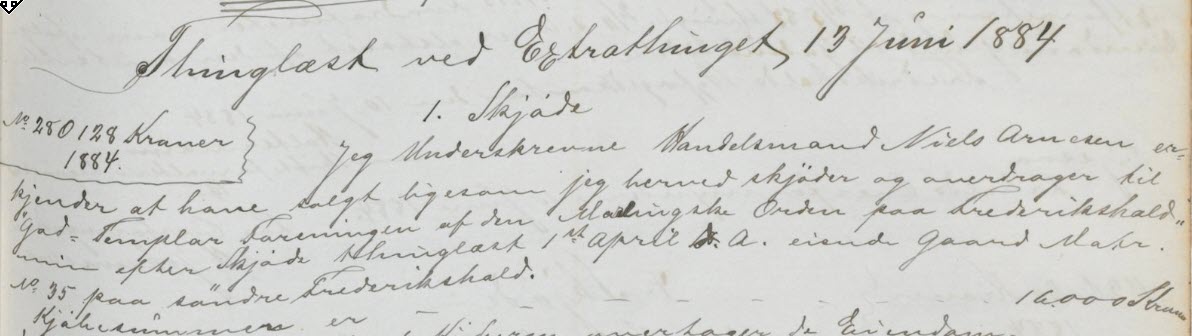 Thinglæst ved Extrathinget 13 Juni 1884
1. Skjøde
No 280 128 Kroner
1884.
Jeg Underskrevne Handelsmand Niels Arnesen er-
kjender at have solgt ligesom jeg herved skjøder og overdrager til
"God-Templar Foreningen af den Malingske Orden paa Frederikshald"
min efter Skjøde thinglæst 1st April d. A. eiende Gaard Matr.
No 35 paa søndre Frederikshald.
Kjøbesummen er — — — — 16000 Kroner
overtager de Eiendom